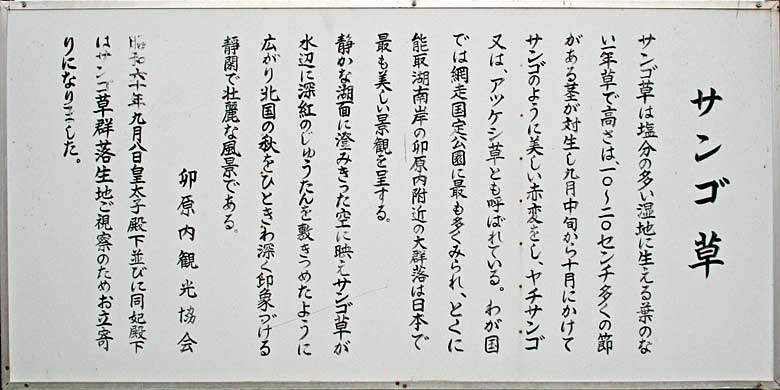 サンゴ草
サンゴ草は塩分の多い湿地に生える葉のな
い一年草で高さは、一〇～二〇センチ多くの節
がある茎が対生し九月中旬から十月にかけて
サンゴのように美しい赤変をし、ヤチサンゴ
又は、アツケシ草とも呼ばれている。わが国
では網走国定公園に最も多くみられ、とくに
能取湖南岸の卯原内附近の大群落は日本で
最も美しい景観を呈する。
静かな湖面に澄みきった空に映えサンゴ草が
水辺に深紅のじゅうたんを敷きつめたように
広がり北国の秋をひときわ深く印象づける
静閑で壮麗な風景である。
卯原内観光協会
昭和六十年九月八日皇太子殿下並びに同妃殿下
はサンゴ草群落生地ご視察のためお立寄
りになりました。